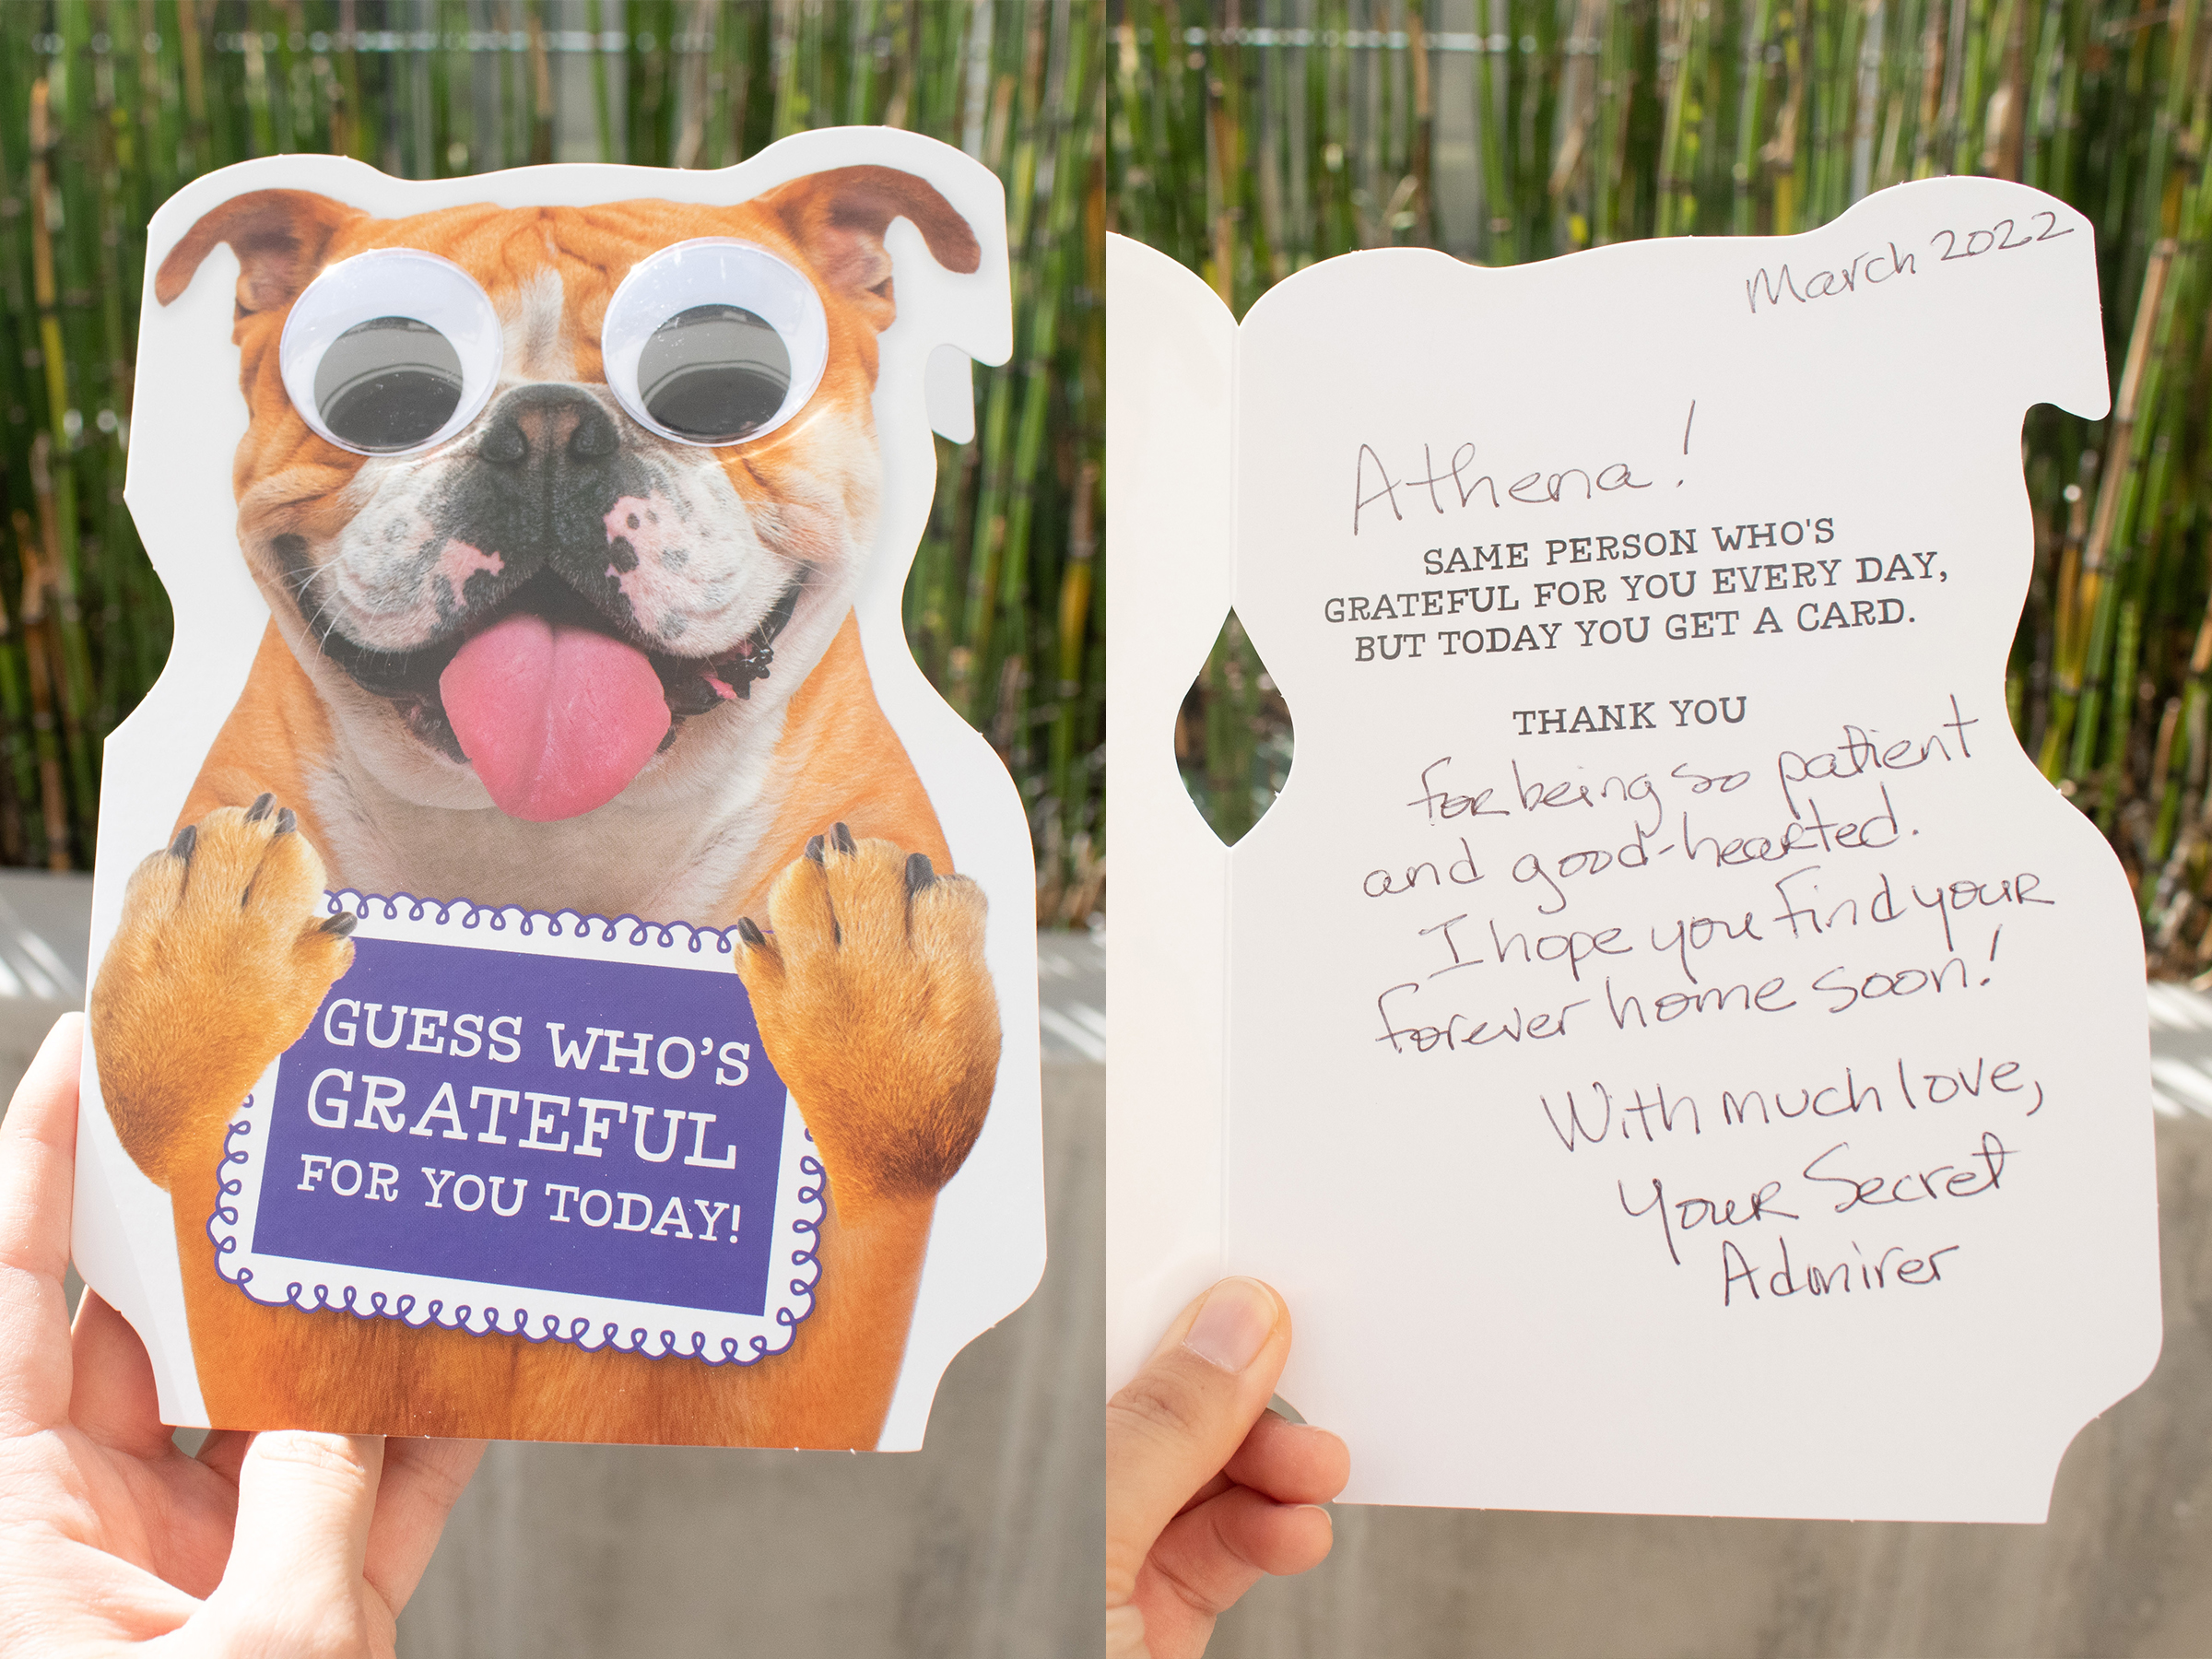 GUESS WHO'S
GRATEFUL
FOR YOU TODAY!
March 2022
Athena!
SAME PERSON WHO'S
GRATEFUL FOR YOU EVERY DAY,
BUT TODAY YOU GET A CARD.
THANK YOU
for being so patient
and good-hearted.
I hope you find your
forever home soon!
With much love,
Your Secret
Admirer